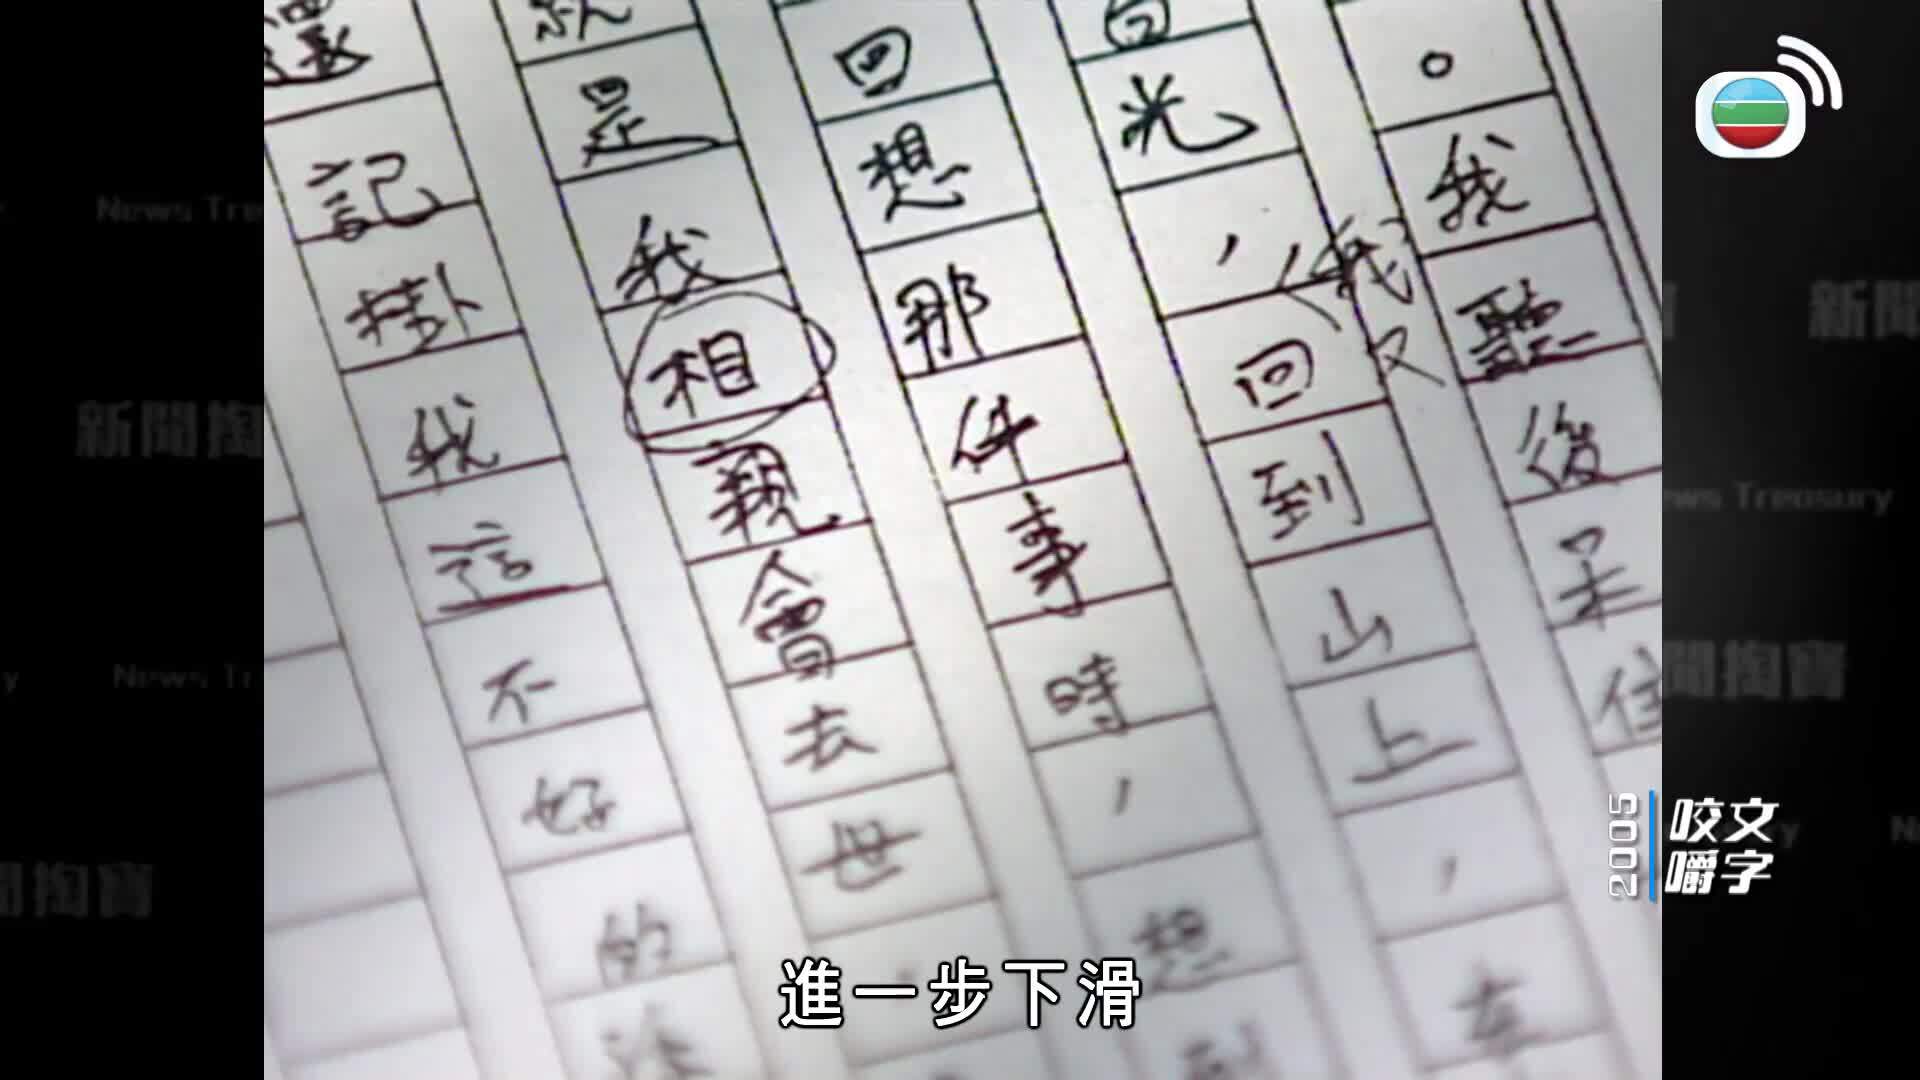 。我聽後呆住
白光，回到山上，在
（我又
回想那件事時，想到
就是我相親會去世，
還記掛我這不好的
進一步下滑
2005
咬文
嚼字
新聞掏寶
News Treasury